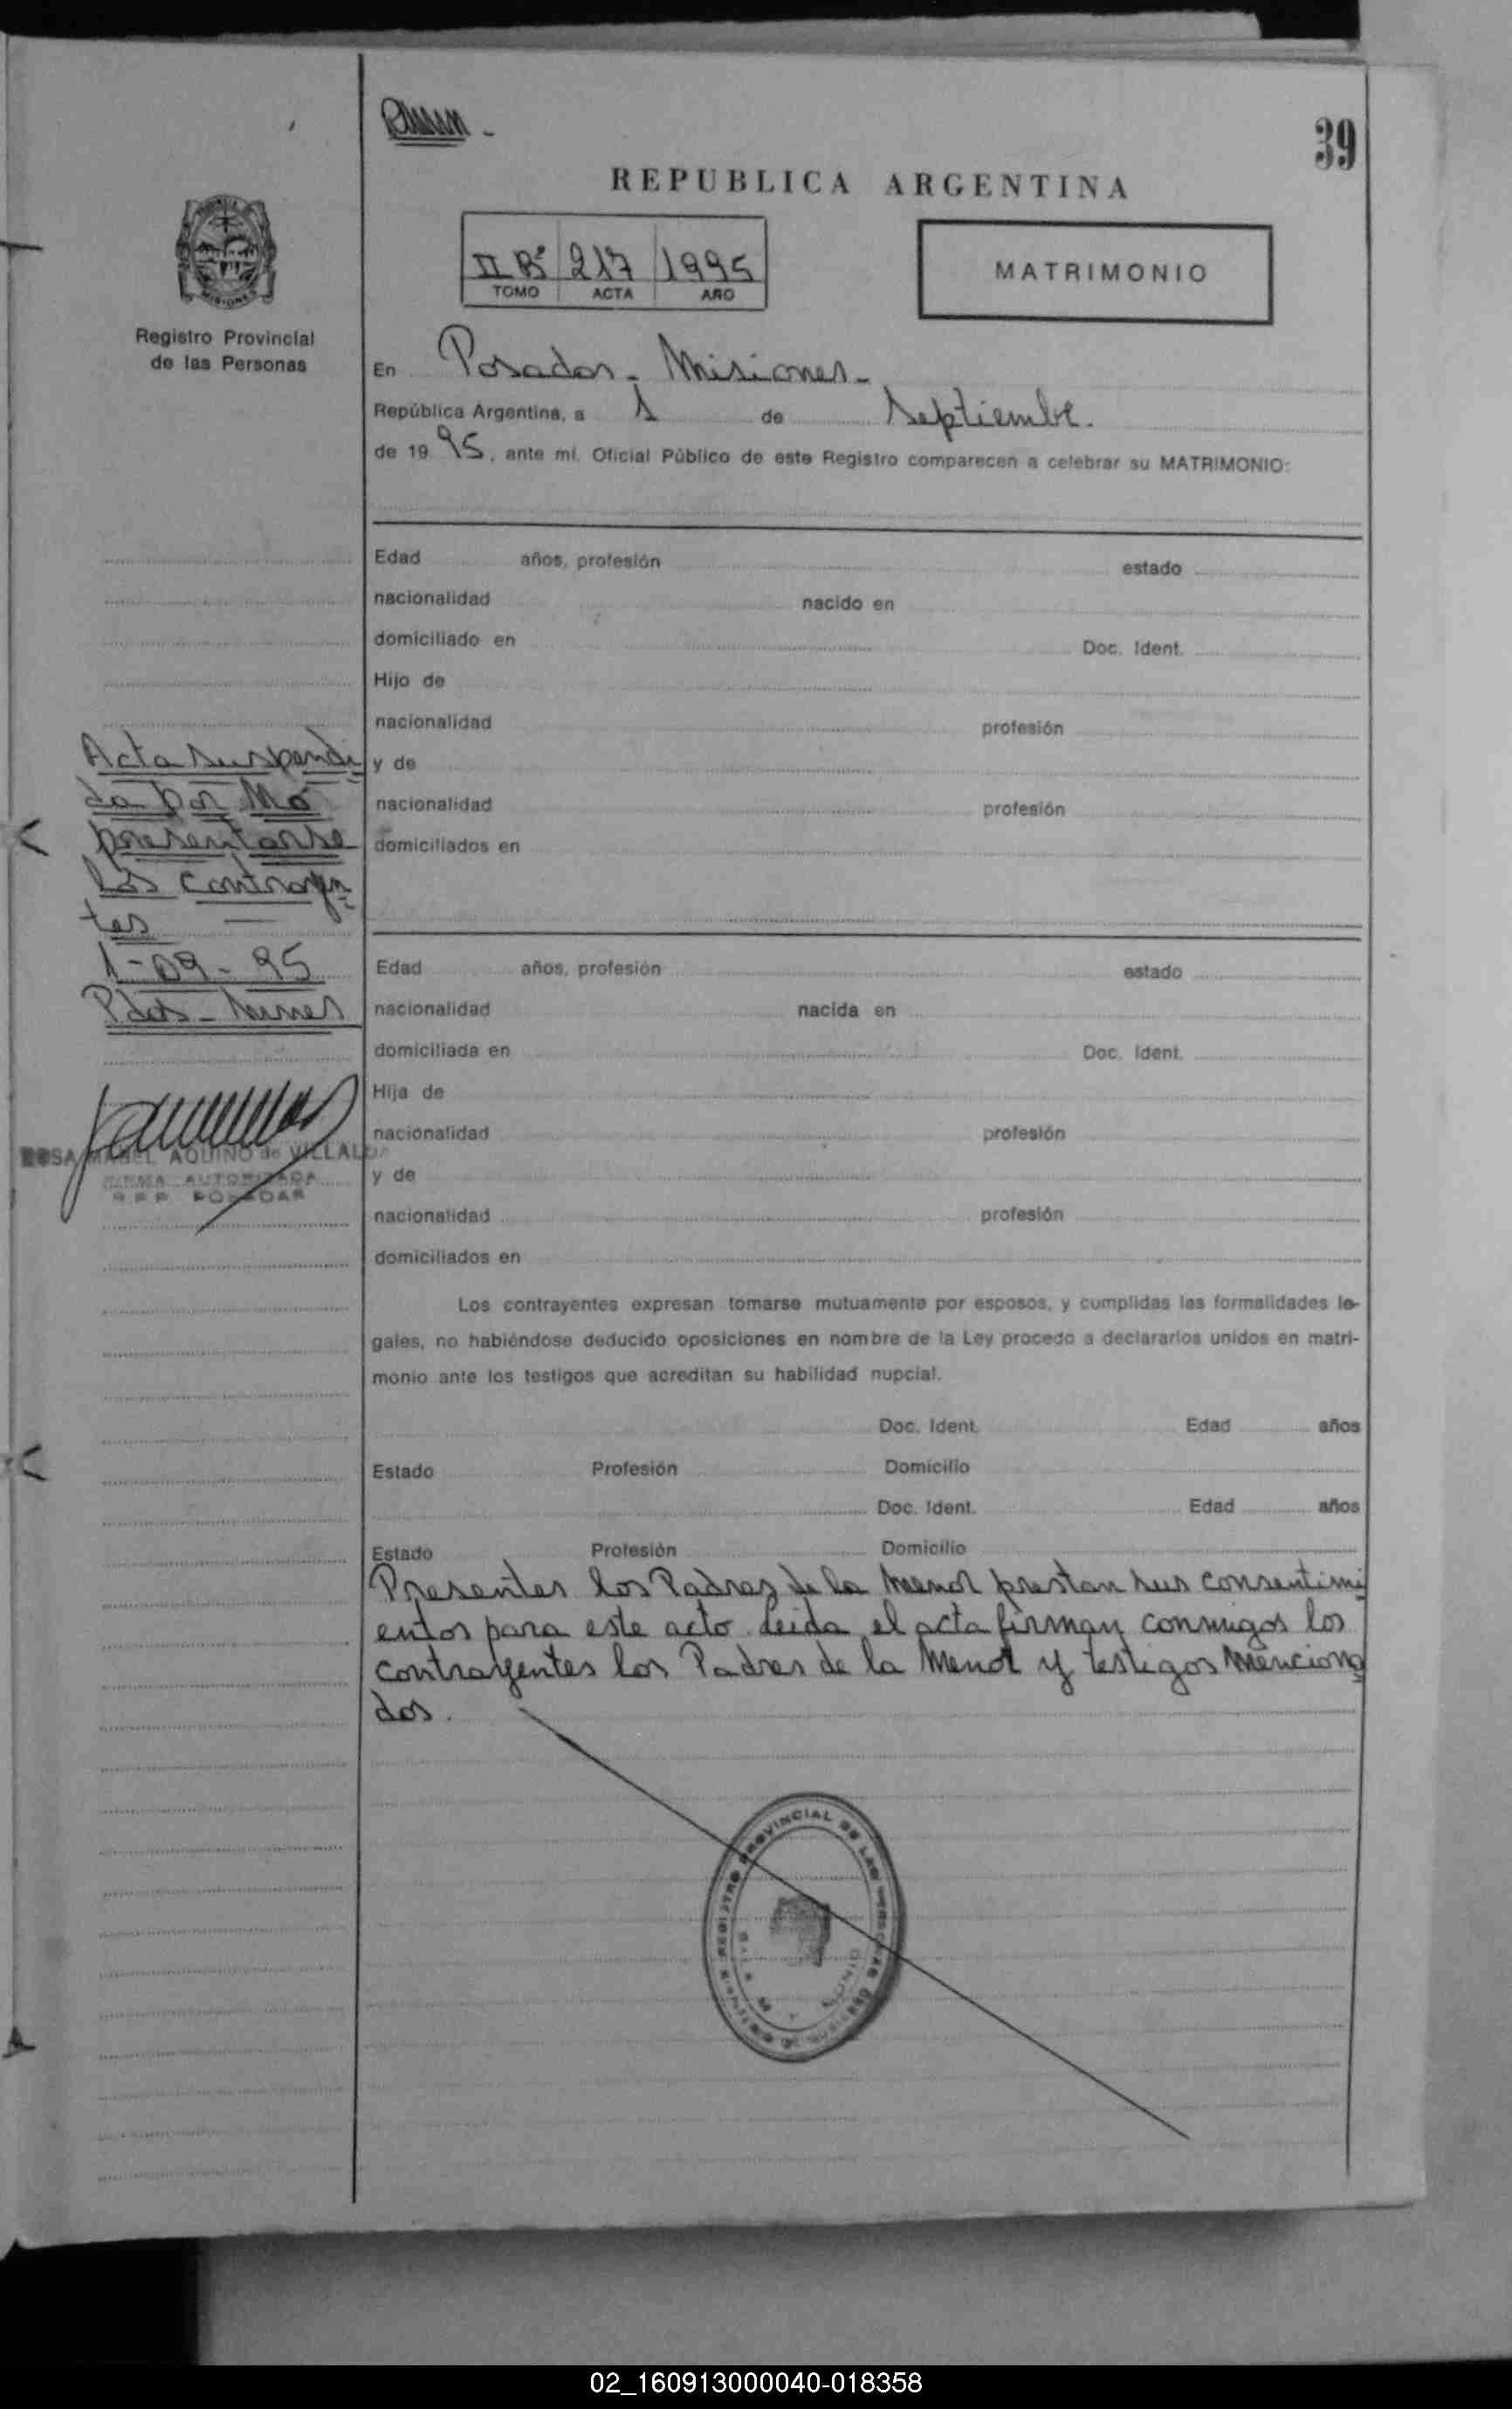 39
REPUBLICA ARGENTINA
II Bº 217 1995
TOMO ACTA AÑO
MATRIMONIO
MISIONES
Registro Provincial
de las Personas
En Posadas - Misiones -
República Argentina, a 1 de Septiembre.
de 1995, ante mí, Oficial Público de este Registro comparecen a celebrar su MATRIMONIO:
Edad años, profesión estado
nacionalidad nacido en
domiciliado en Doc. Ident.
Hijo de
nacionalidad profesión
y de
nacionalidad profesión
domiciliados en
Acta suspendi
da por No
presentarse
los contrayen
tes —
1-09-95
Pdas -
ROSA MABEL AQUINO de VILLALBA
FIRMA AUTORIZADA
R P P POSADAS
Edad años, profesión estado
nacionalidad nacida en
domiciliada en Doc. Ident.
Hija de
nacionalidad profesión
y de
nacionalidad profesión
domiciliados en
Los contrayentes expresan tomarse mutuamente por esposos, y cumplidas las formalidades le-
gales, no habiéndose deducido oposiciones en nombre de la Ley procedo a declararlos unidos en matri-
monio ante los testigos que acreditan su habilidad nupcial.
Doc. Ident. Edad años
Estado Profesión Domicilio
Doc. Ident. Edad años
Estado Profesión Domicilio
Presentes los Padres de la Menor prestan sus consentimi
entos para este acto. Leida el acta firman conmigos los
contrayentes los Padres de la Menor y testigos Menciona
dos.
REGISTRO PROVINCIAL DE LAS PERSONAS
02_160913000040-018358